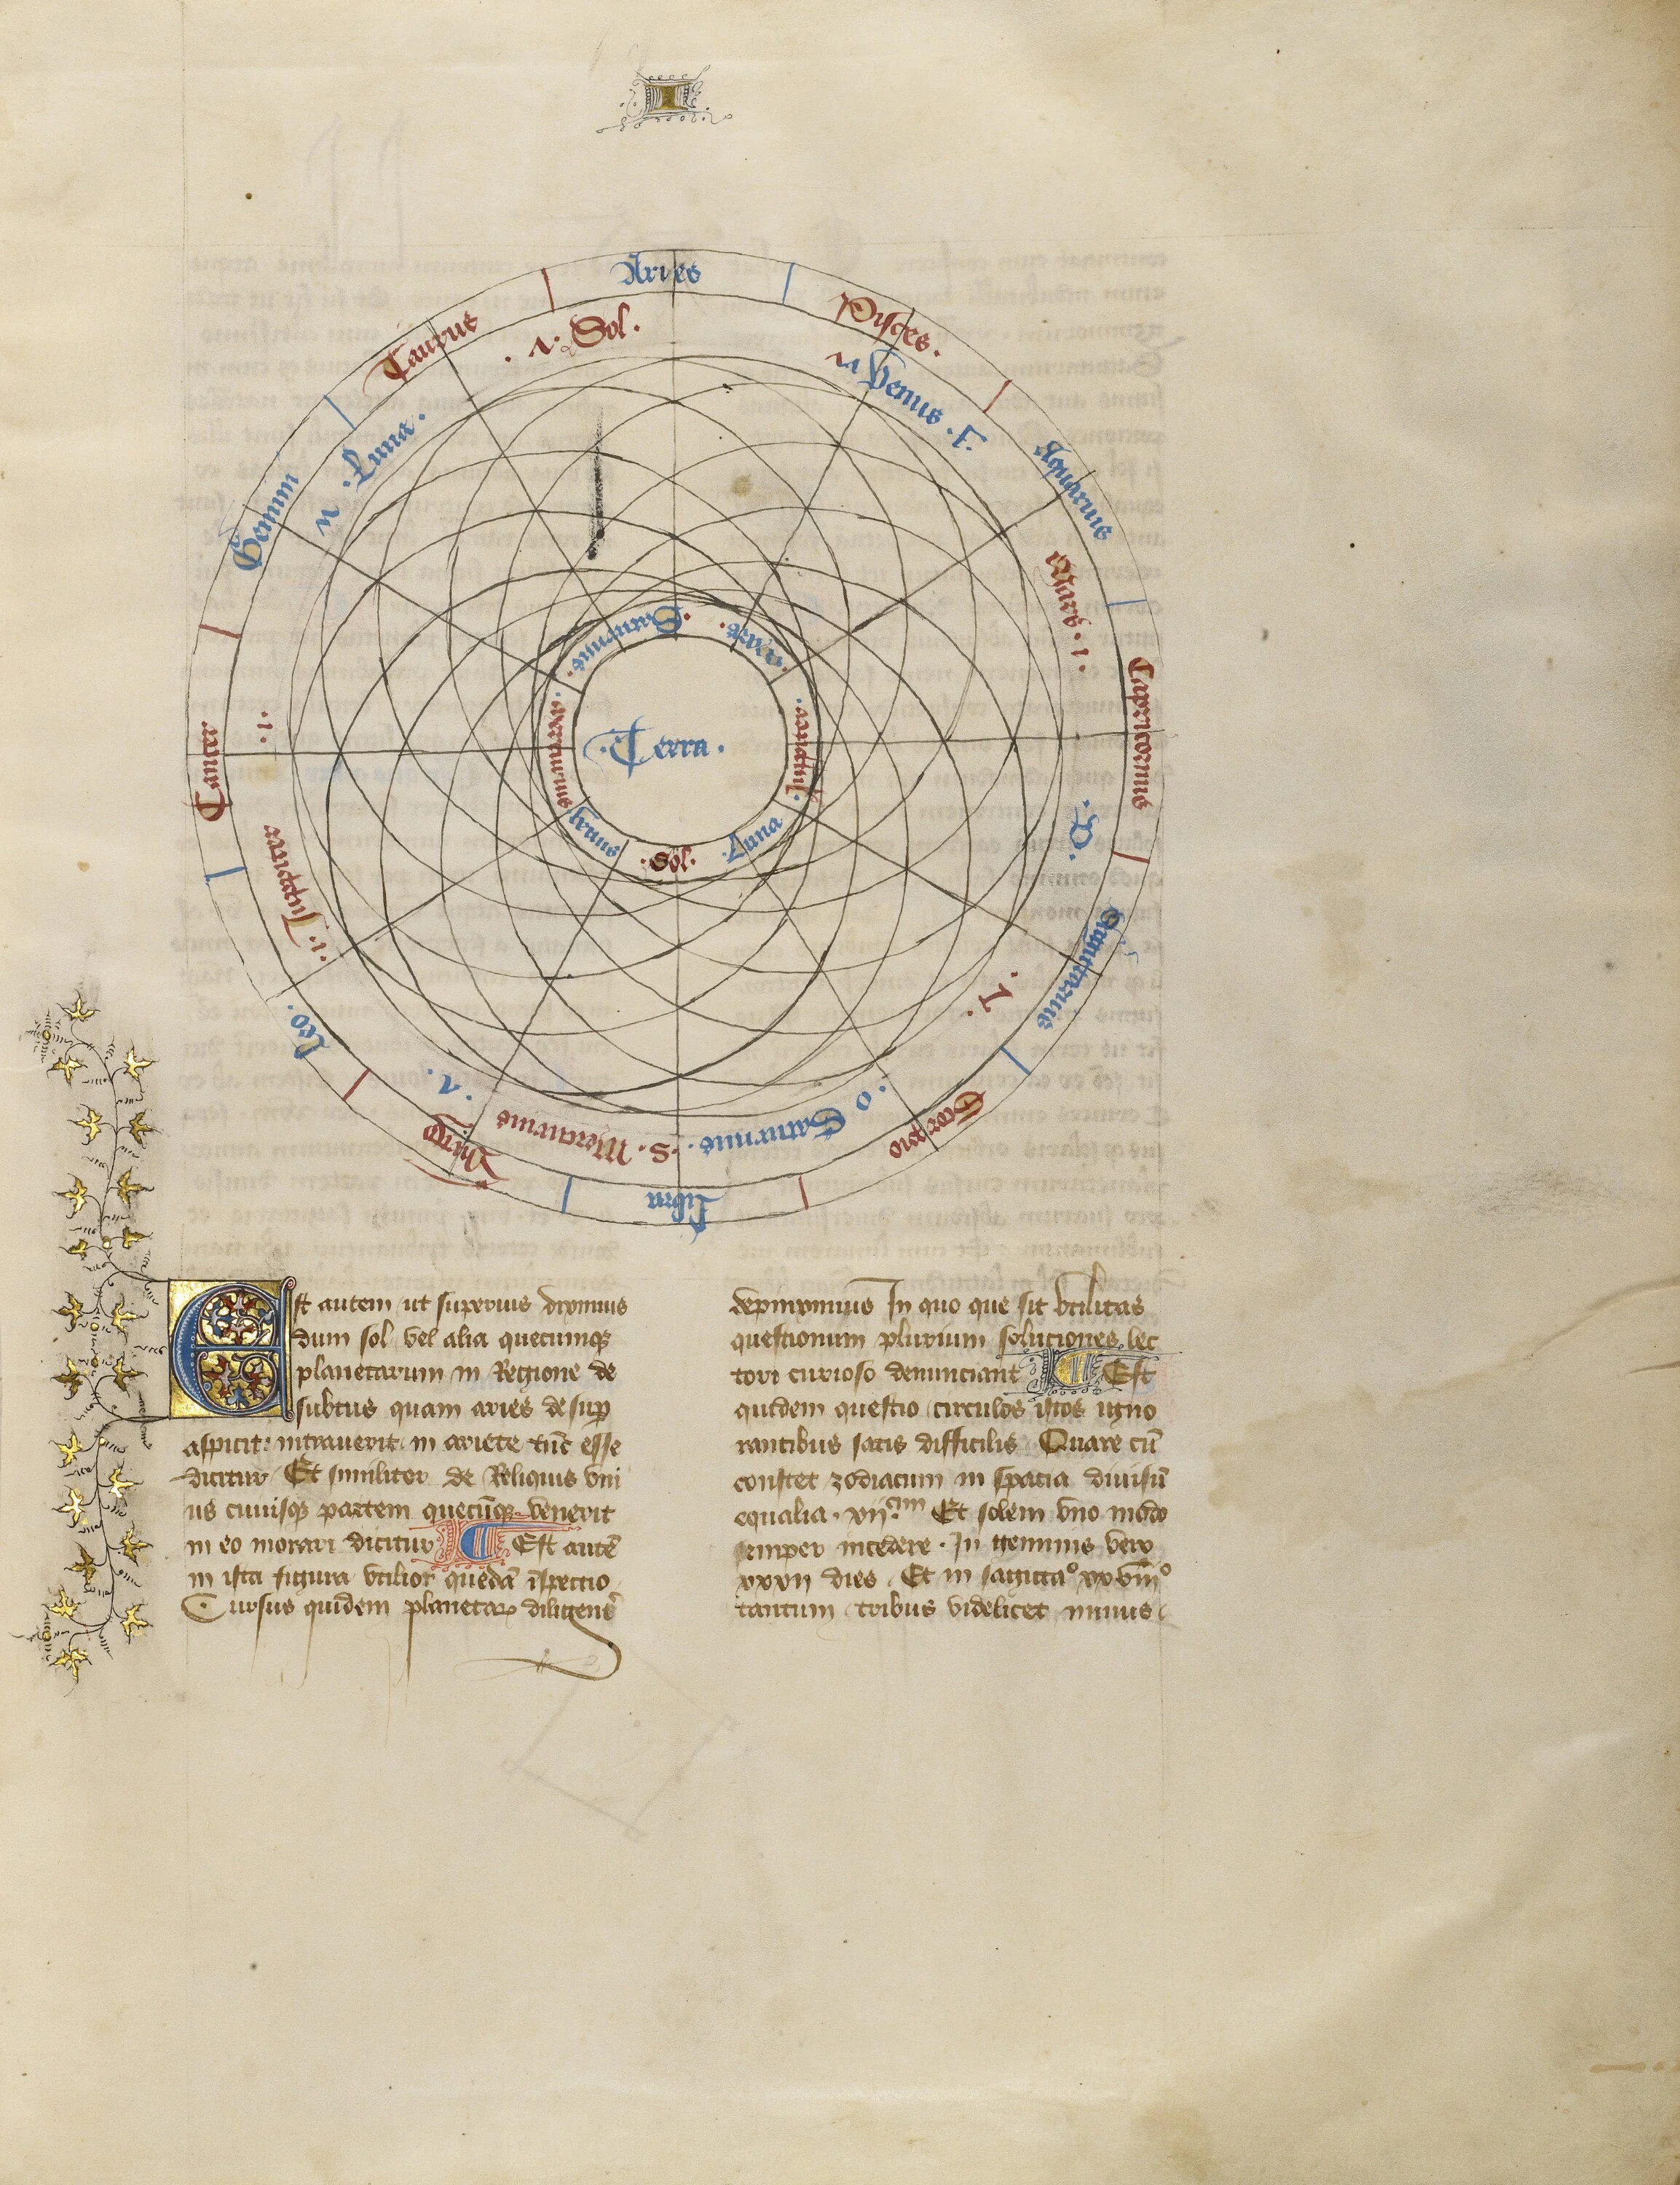 I
Aries
Pisces.
Aquarius
Capricornus
Sagittarius
Scorpio
Libra
Virgo
Leo.
Cancer
Gemini
Taurus
Sol.
Venus
Mars. 1.
. D.
. L.
. o Saturnus.
. S. Mercurius
. 1. Jupiter
. 1.
. Luna.
. Saturnus.
. Mars.
Jupiter.
Luna
. Sol.
Venus
Mercurius.
. Terra.
Est autem ut superius diximus
dum sol vel alia quecumqꝫ
planetarum in Regione de
subtus quam aries desuꝑ
aspicit: intrauerit in ariete tūc esse
dicitur Et similiter de Reliquis vni
us cuiusqꝫ partem quecūqꝫ venerit
in eo morari dicitur ¶ Est autē
in ista figura vtilior quedā īspectio
Cursus quidem planetaꝝ
depinximus In quo que sit vtilitas
questionum plurium soluciones lec
tori curioso denunciant ¶ Est
quidem questio circulos istos igno
rantibus satis difficilis Quare cū
constet zodiacum in spacia diuisū
equalia. xij. cim Et solem vno modo
semper incedere. In geminis vero
xxxij dies. Et in sagittaº xxviiiº
tantum tribus videlicet minus